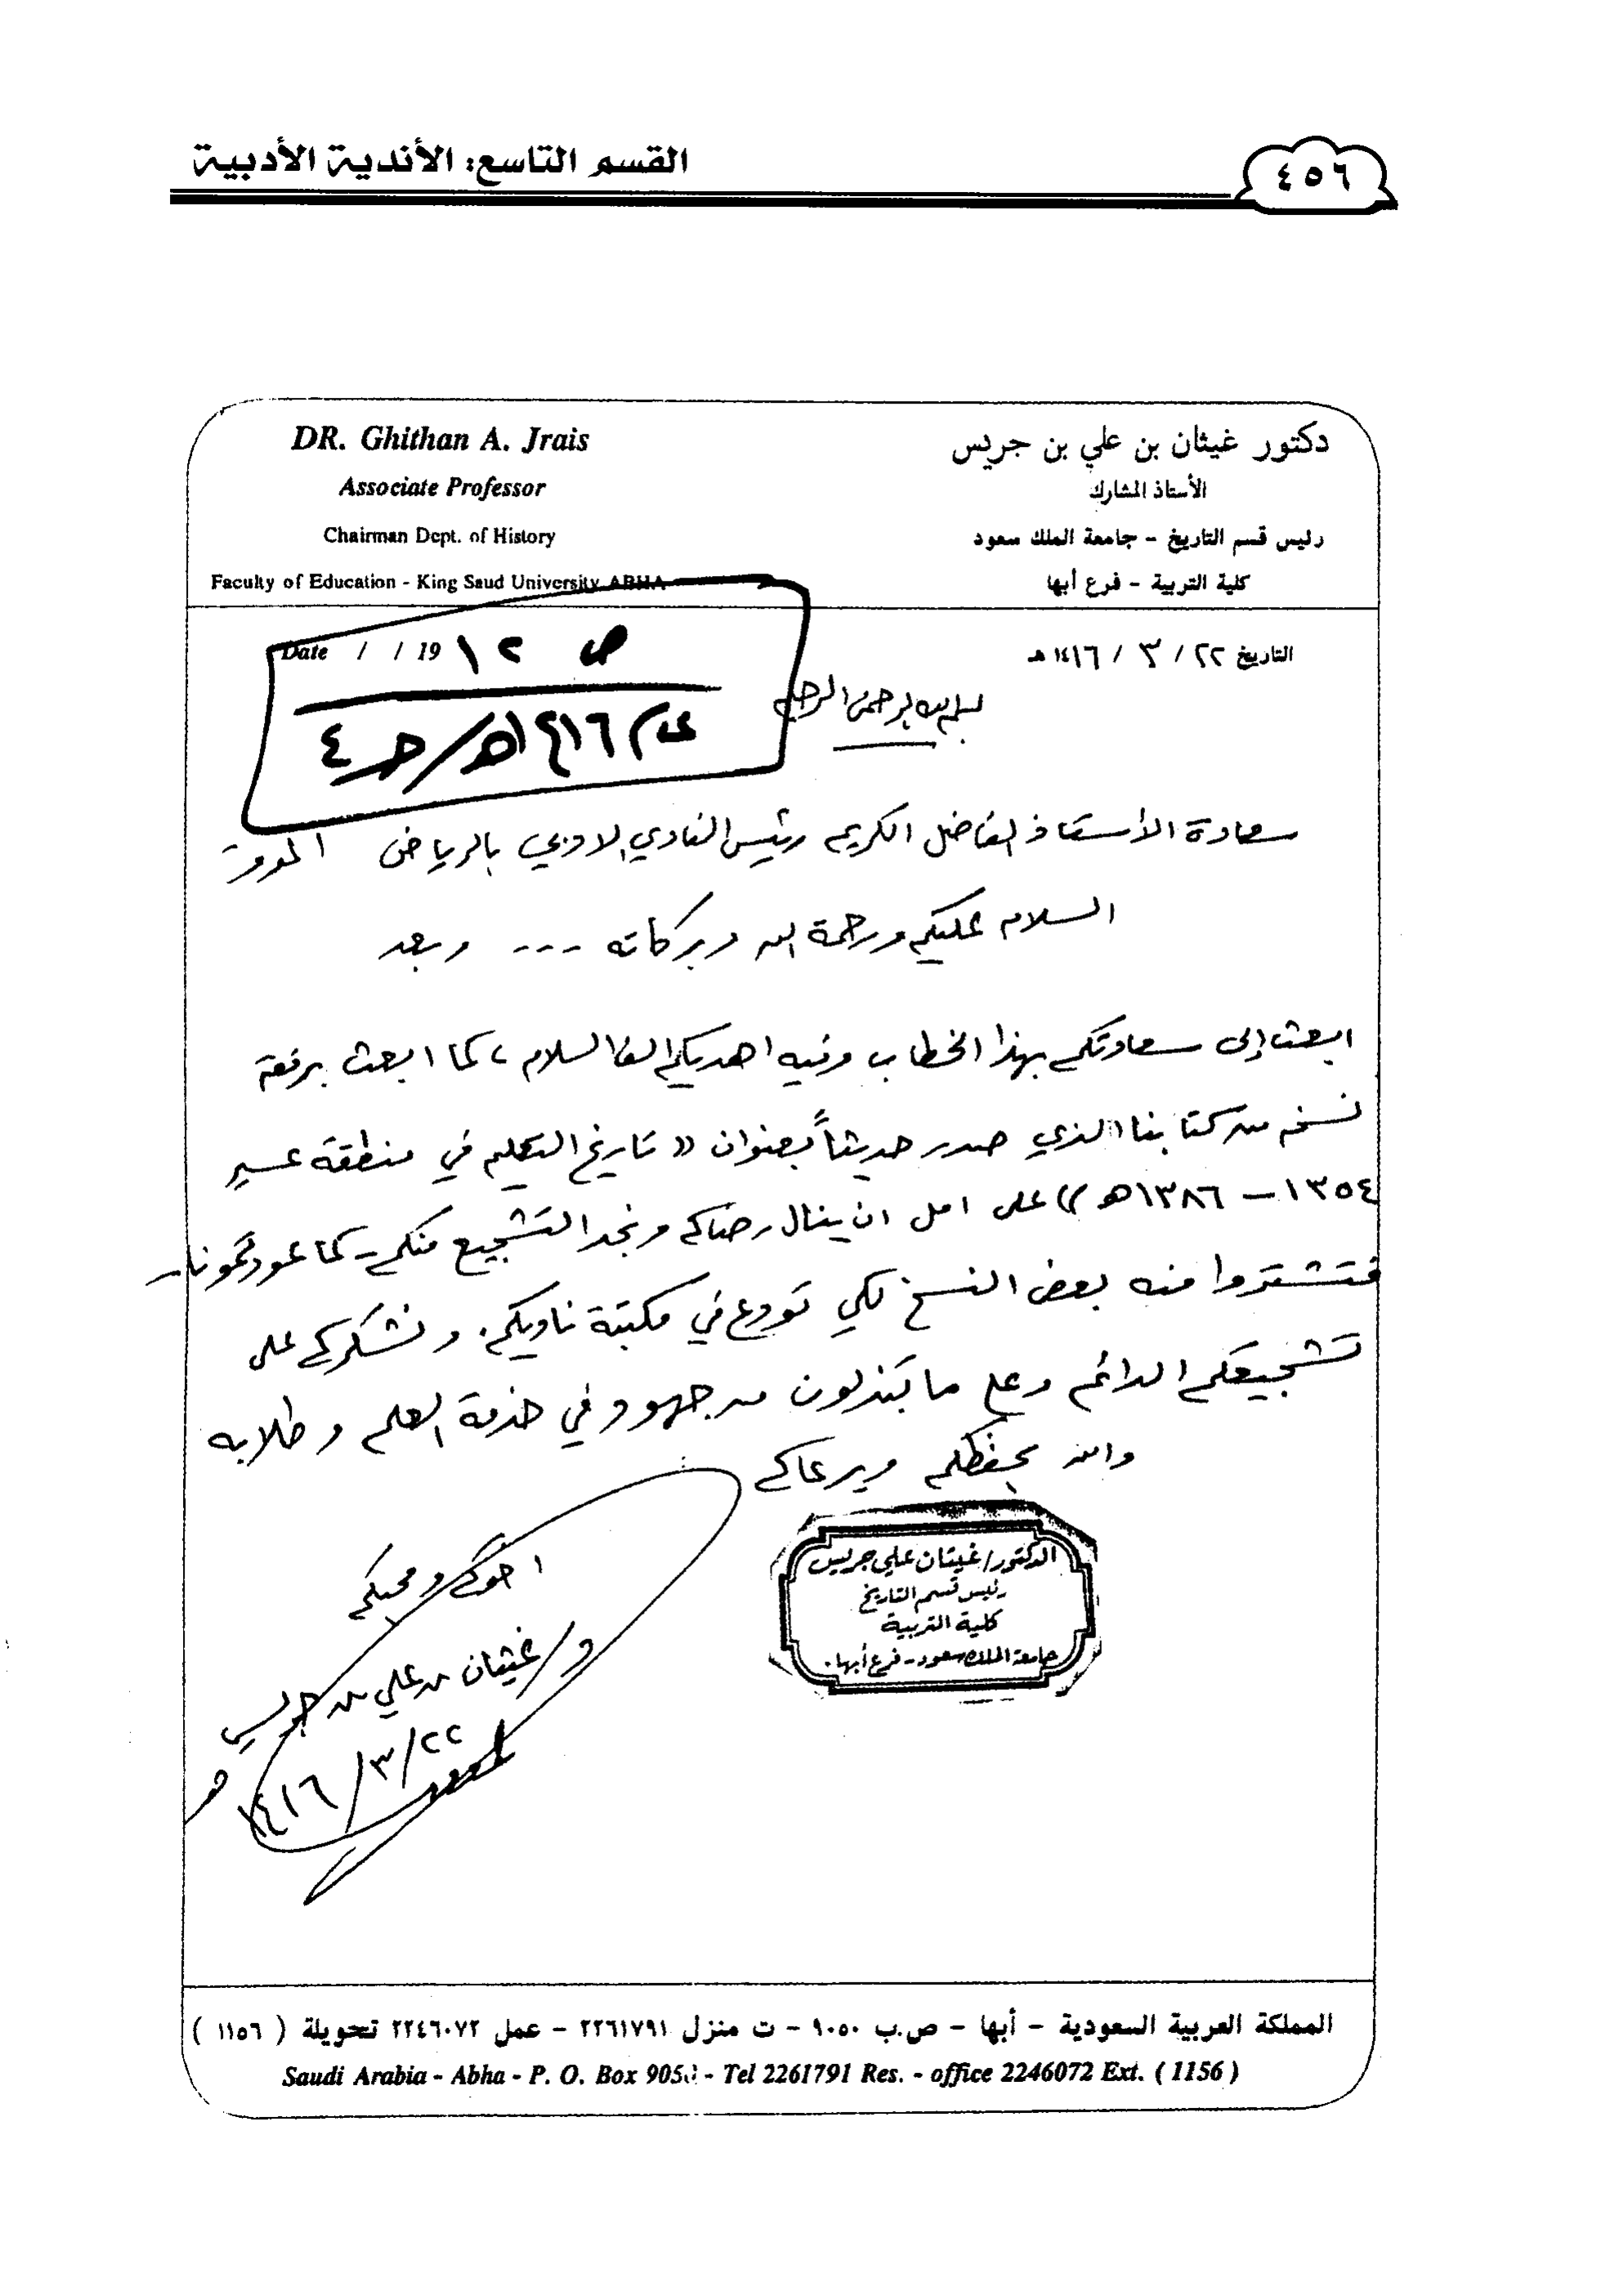 القسم التاسع: الأندية الأدبية
٤٥٦
DR. Ghithan A. Jrais
Associate Professor
Chairman Dept. of History
Faculty of Education - King Saud University ABHA
دكتور غيثان بن علي بن جريس
الأستاذ المشارك
رئيس قسم التاريخ - جامعة الملك سعود
كلية التربية - فرع أبها
Date / / 19
ص ١٢
عام ١٤١٦هـ/جـ٤
التاريخ ٢٢ / ٣ / ١٤١٦ هـ
بسم الله الرحمن الرحيم
سعادة الأستاذ الفاضل الكريم رئيس النادي الادبي بالرياض الموقر
السلام عليكم ورحمة الله وبركاته --- وبعد
ابعث إلى سعادتكم بهذا الخطاب وفيه اهديكم الف السلام، كما ابعث برفقة
نسخه من كتابنا الذي صدر حديثاً بعنوان «تاريخ التعليم في منطقة عسير
١٣٥٤ - ١٣٨٦هـ» على امل ان ينال رضاكم ونجد التشجيع منكم - كما عودتمونا -
فتشتروا منه بعض النسخ لكي تودع في مكتبة ناديكم. ونشكركم على
تشجيعكم الدائم وعلى ما تبذلون من جهود في خدمة العلم وطلابه
والله يحفظكم ويرعاكم
اخوكم ومحبكم
د/غيثان بن علي بن جريس
٢٢/٣/١٤١٦هـ
الدكتور/غيثان علي جريس
رئيس قسم التاريخ
كلية التربية
جامعة الملك سعود - فرع أبها.
المملكة العربية السعودية - أبها - ص.ب ٩٠٥٠ - ت منزل ٢٢٦١٧٩١ - عمل ٢٢٤٦٠٧٢ تحويلة ( ١١٥٦ )
Saudi Arabia - Abha - P. O. Box 9050 - Tel 2261791 Res. - office 2246072 Ext. ( 1156 )